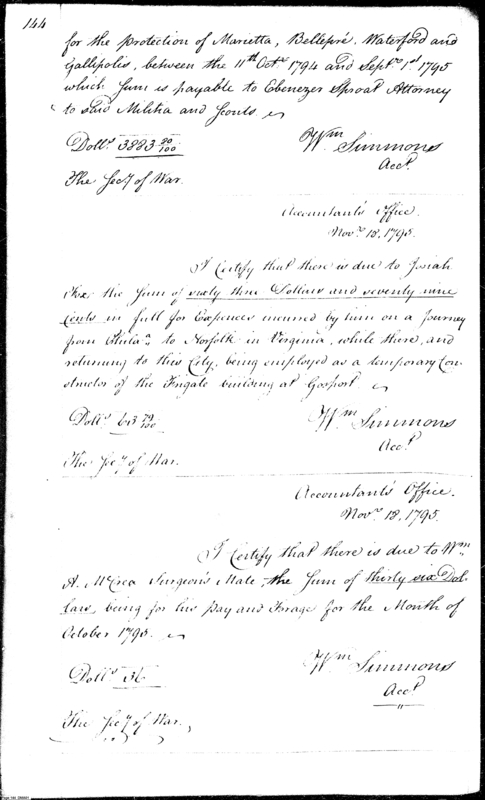 144
for the protection of Marietta, Bellepré, Waterford and
Gallipolis, between the 11th Octr. 1794 and Septr. 1st 1795
which Sum is payable to Ebenezer Sproat Attorney
to said Militia and Scouts.
Dolls. 3883 90/100
Wm Simmons
Acct.
The Secy of War.
Accountant's Office.
Novr. 18. 1795.
I Certify that there is due to Josiah
Fox the Sum of sixty three Dollars and seventy nine
Cents in full for Expences incurred by him on a Journey
from Philaa. to Norfolk in Virginia, while there, and
returning to this City, being employed as a temporary Con-
structor of the Frigate building at Gosport
Dolls. 63 79/100
Wm Simmons
Acct.
The Secy of War.
Accountant's Office.
Novr. 18. 1795.
I Certify that there is due to Wm
A. McCrea Surgeon's Mate, the Sum of thirty six Dol-
lars, being for his Pay and Forage for the Month of
October 1795.
Dolls. 36
Wm Simmons
Acct.
The Secy of War.